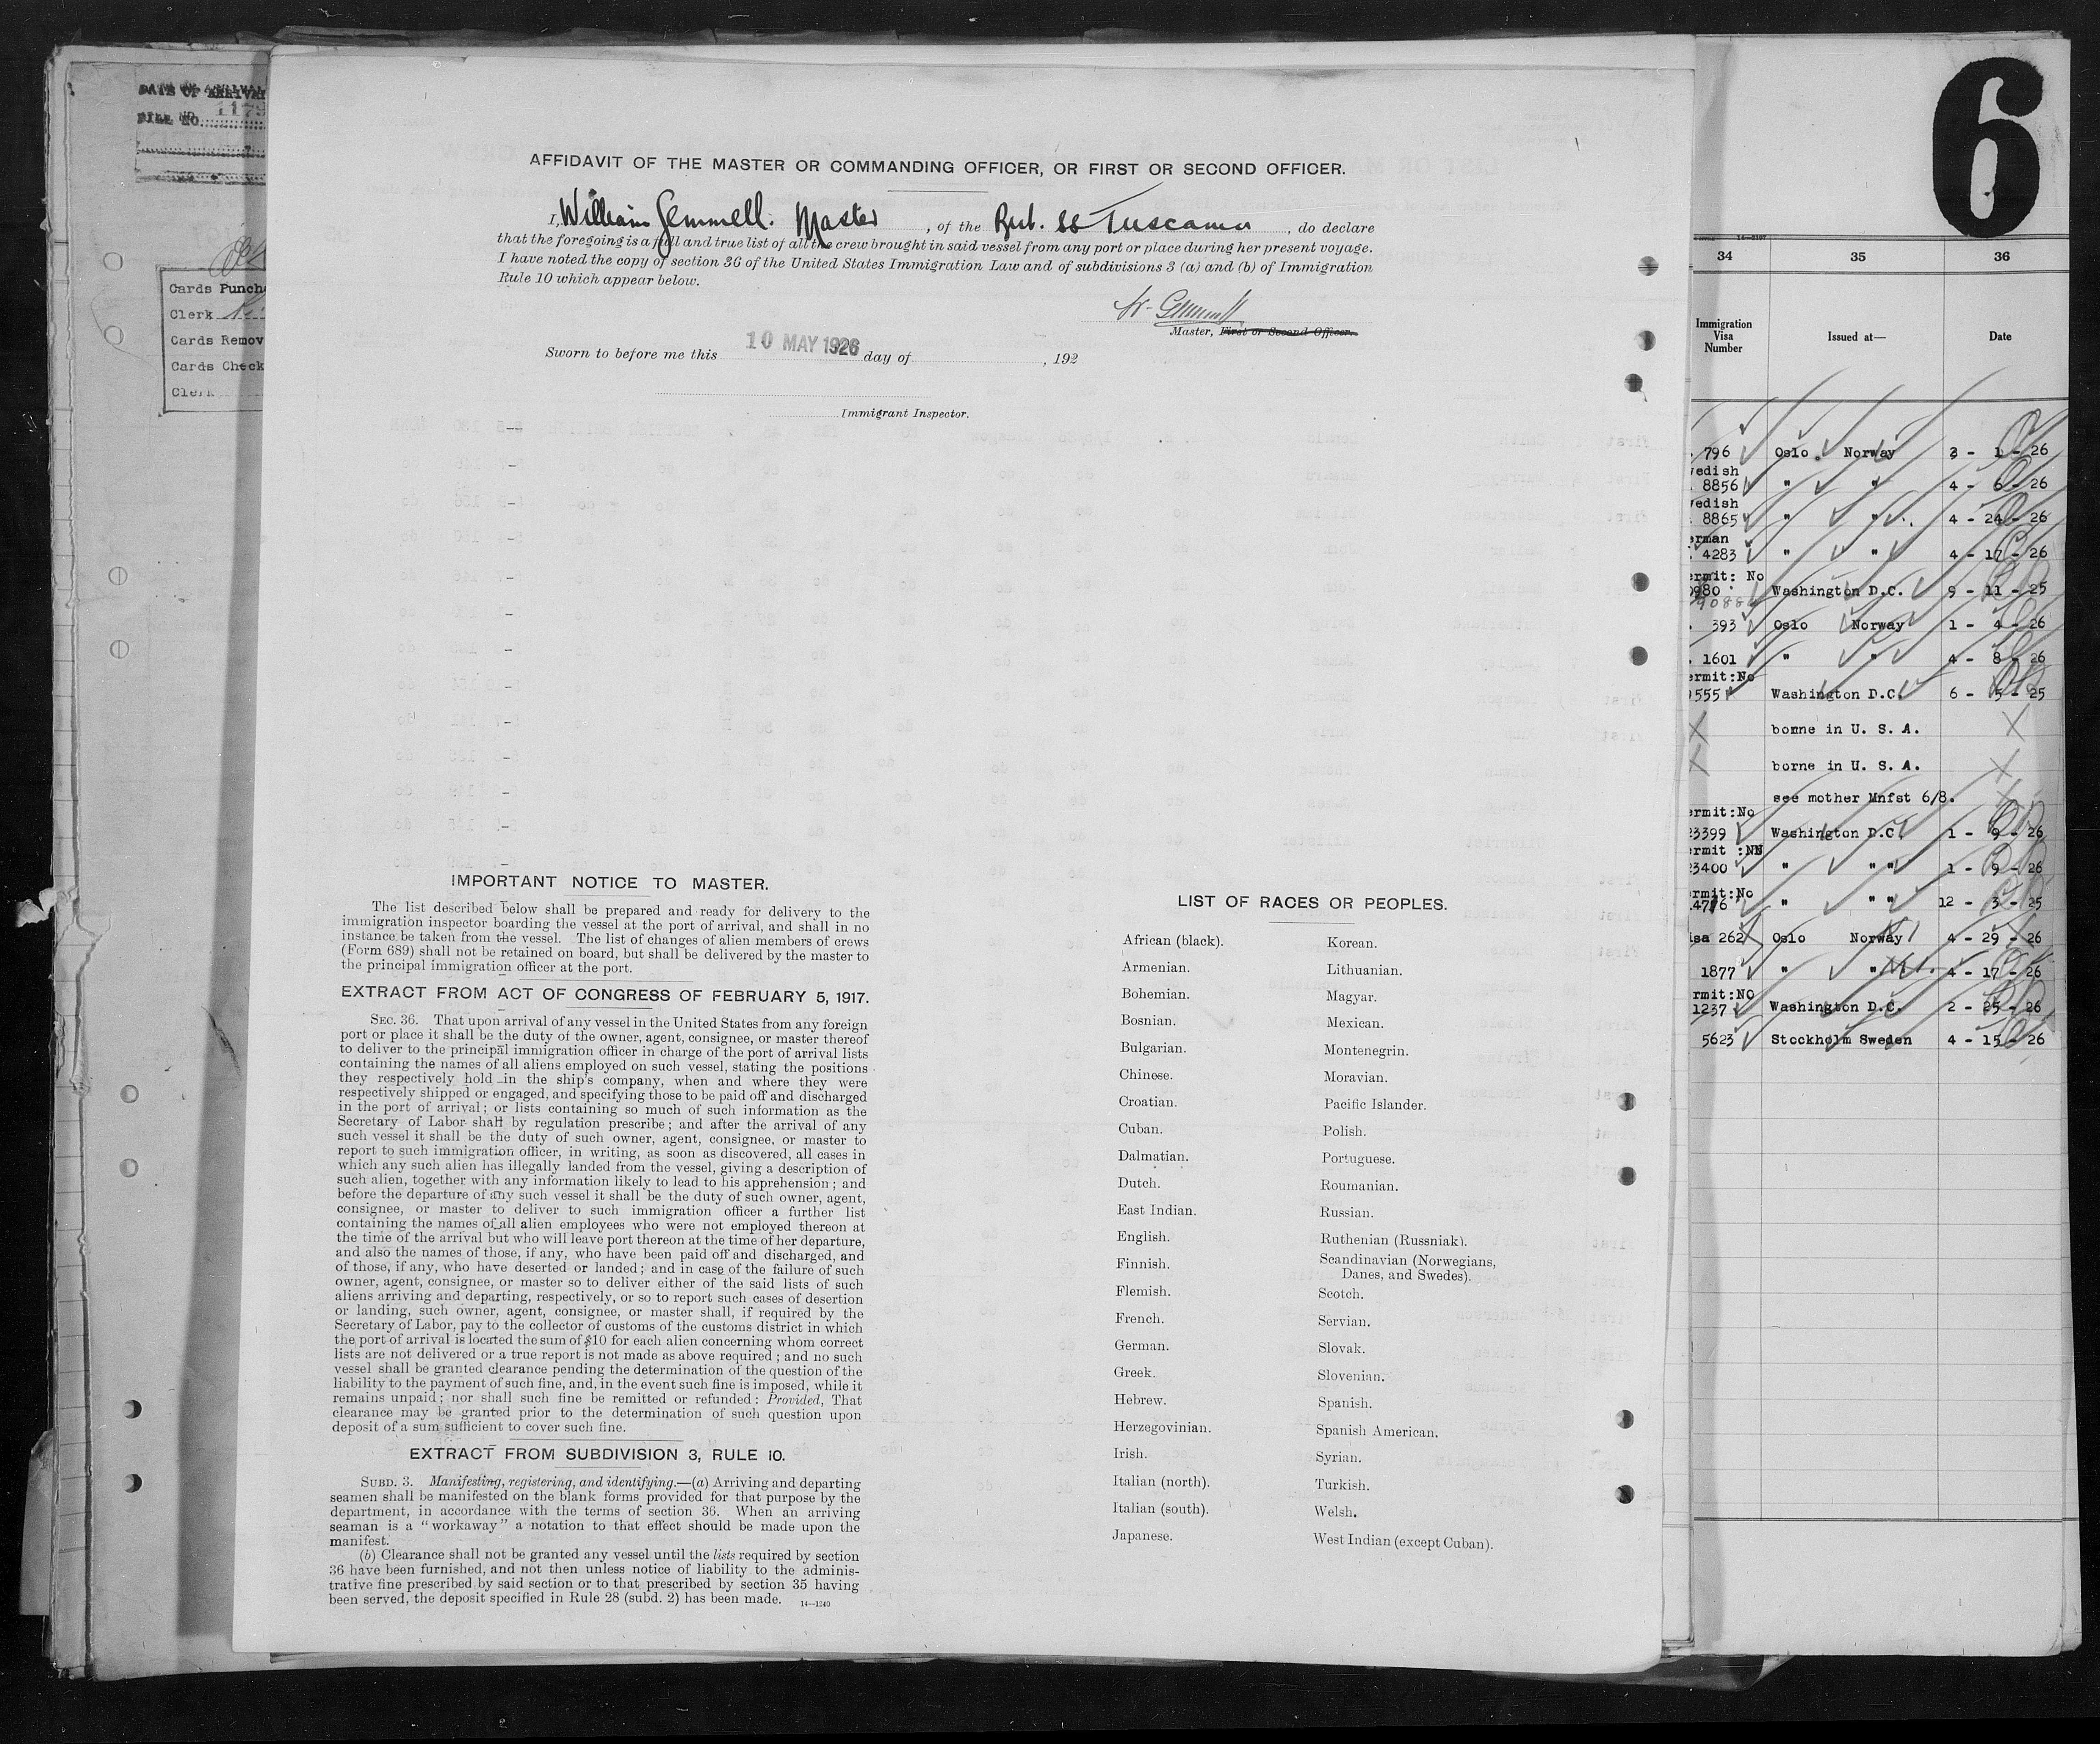 DATE OF ARRIVAL
FILE NO. 1179
Cards Punch
Clerk
Cards Remov
Cards Check
Clerk
AFFIDAVIT OF THE MASTER OR COMMANDING OFFICER, OR FIRST OR SECOND OFFICER.
I, William Gemmell. Master, of the Brit. SS Tuscania, do declare
that the foregoing is a full and true list of all the crew brought in said vessel from any port or place during her present voyage.
I have noted the copy of section 36 of the United States Immigration Law and of subdivisions 3 (a) and (b) of Immigration
Rule 10 which appear below.
W. Gemmell
Master, First or Second Officer.
Sworn to before me this 10 MAY 1926 day of , 192
Immigrant Inspector.
IMPORTANT NOTICE TO MASTER.
The list described below shall be prepared and ready for delivery to the
immigration inspector boarding the vessel at the port of arrival, and shall in no
instance be taken from the vessel. The list of changes of alien members of crews
(Form 689) shall not be retained on board, but shall be delivered by the master to
the principal immigration officer at the port.
EXTRACT FROM ACT OF CONGRESS OF FEBRUARY 5, 1917.
SEC. 36. That upon arrival of any vessel in the United States from any foreign
port or place it shall be the duty of the owner, agent, consignee, or master thereof
to deliver to the principal immigration officer in charge of the port of arrival lists
containing the names of all aliens employed on such vessel, stating the positions
they respectively hold in the ship's company, when and where they were
respectively shipped or engaged, and specifying those to be paid off and discharged
in the port of arrival; or lists containing so much of such information as the
Secretary of Labor shall by regulation prescribe; and after the arrival of any
such vessel it shall be the duty of such owner, agent, consignee, or master to
report to such immigration officer, in writing, as soon as discovered, all cases in
which any such alien has illegally landed from the vessel, giving a description of
such alien, together with any information likely to lead to his apprehension; and
before the departure of any such vessel it shall be the duty of such owner, agent,
consignee, or master to deliver to such immigration officer a further list
containing the names of all alien employees who were not employed thereon at
the time of the arrival but who will leave port thereon at the time of her departure,
and also the names of those, if any, who have been paid off and discharged, and
of those, if any, who have deserted or landed; and in case of the failure of such
owner, agent, consignee, or master so to deliver either of the said lists of such
aliens arriving and departing, respectively, or so to report such cases of desertion
or landing, such owner, agent, consignee, or master shall, if required by the
Secretary of Labor, pay to the collector of customs of the customs district in which
the port of arrival is located the sum of $10 for each alien concerning whom correct
lists are not delivered or a true report is not made as above required; and no such
vessel shall be granted clearance pending the determination of the question of the
liability to the payment of such fine, and, in the event such fine is imposed, while it
remains unpaid; nor shall such fine be remitted or refunded: Provided, That
clearance may be granted prior to the determination of such question upon
deposit of a sum sufficient to cover such fine.
EXTRACT FROM SUBDIVISION 3, RULE 10.
SUBD. 3. Manifesting, registering, and identifying.—(a) Arriving and departing
seamen shall be manifested on the blank forms provided for that purpose by the
department, in accordance with the terms of section 36. When an arriving
seaman is a "workaway" a notation to that effect should be made upon the
manifest.
(b) Clearance shall not be granted any vessel until the lists required by section
36 have been furnished, and not then unless notice of liability to the adminis-
trative fine prescribed by said section or to that prescribed by section 35 having
been served, the deposit specified in Rule 28 (subd. 2) has been made.
14—1240
LIST OF RACES OR PEOPLES.
African (black).
Armenian.
Bohemian.
Bosnian.
Bulgarian.
Chinese.
Croatian.
Cuban.
Dalmatian.
Dutch.
East Indian.
English.
Finnish.
Flemish.
French.
German.
Greek.
Hebrew.
Herzegovinian.
Irish.
Italian (north).
Italian (south).
Japanese.
Korean.
Lithuanian.
Magyar.
Mexican.
Montenegrin.
Moravian.
Pacific Islander.
Polish.
Portuguese.
Roumanian.
Russian.
Ruthenian (Russniak).
Scandinavian (Norwegians,
Danes, and Swedes).
Scotch.
Servian.
Slovak.
Slovenian.
Spanish.
Spanish American.
Syrian.
Turkish.
Welsh.
West Indian (except Cuban).
6
34 35 36
Immigration
Visa
Number
Issued at—
Date
796 Oslo. Norway 3 - 1 - 26
wedish
8856 " " 4 - 6 - 26
wedish
8865 " " 4 - 24 - 26
erman
4283 " " 4 - 17 - 26
ermit: No
0980 Washington D.C. 9 - 11 - 25
393 Oslo Norway 1 - 4 - 26
1601 " " 4 - 8 - 26
ermit:No
555 Washington D.C. 6 - 5 - 25
X borne in U. S. A. X
X borne in U. S. A. X
see mother Mnfst 6/8. X
ermit:No
23399 Washington D.C. 1 - 9 - 26
ermit :NN
23400 " " " 1 - 9 - 26
rmit:No
" " " 12 - 3 - 25
isa 262 Oslo Norway 4 - 29 - 26
1877 " " 4 - 17 - 26
rmit:NO
1237 Washington D.C. 2 - 25 - 26
5623 Stockholm Sweden 4 - 15 - 26